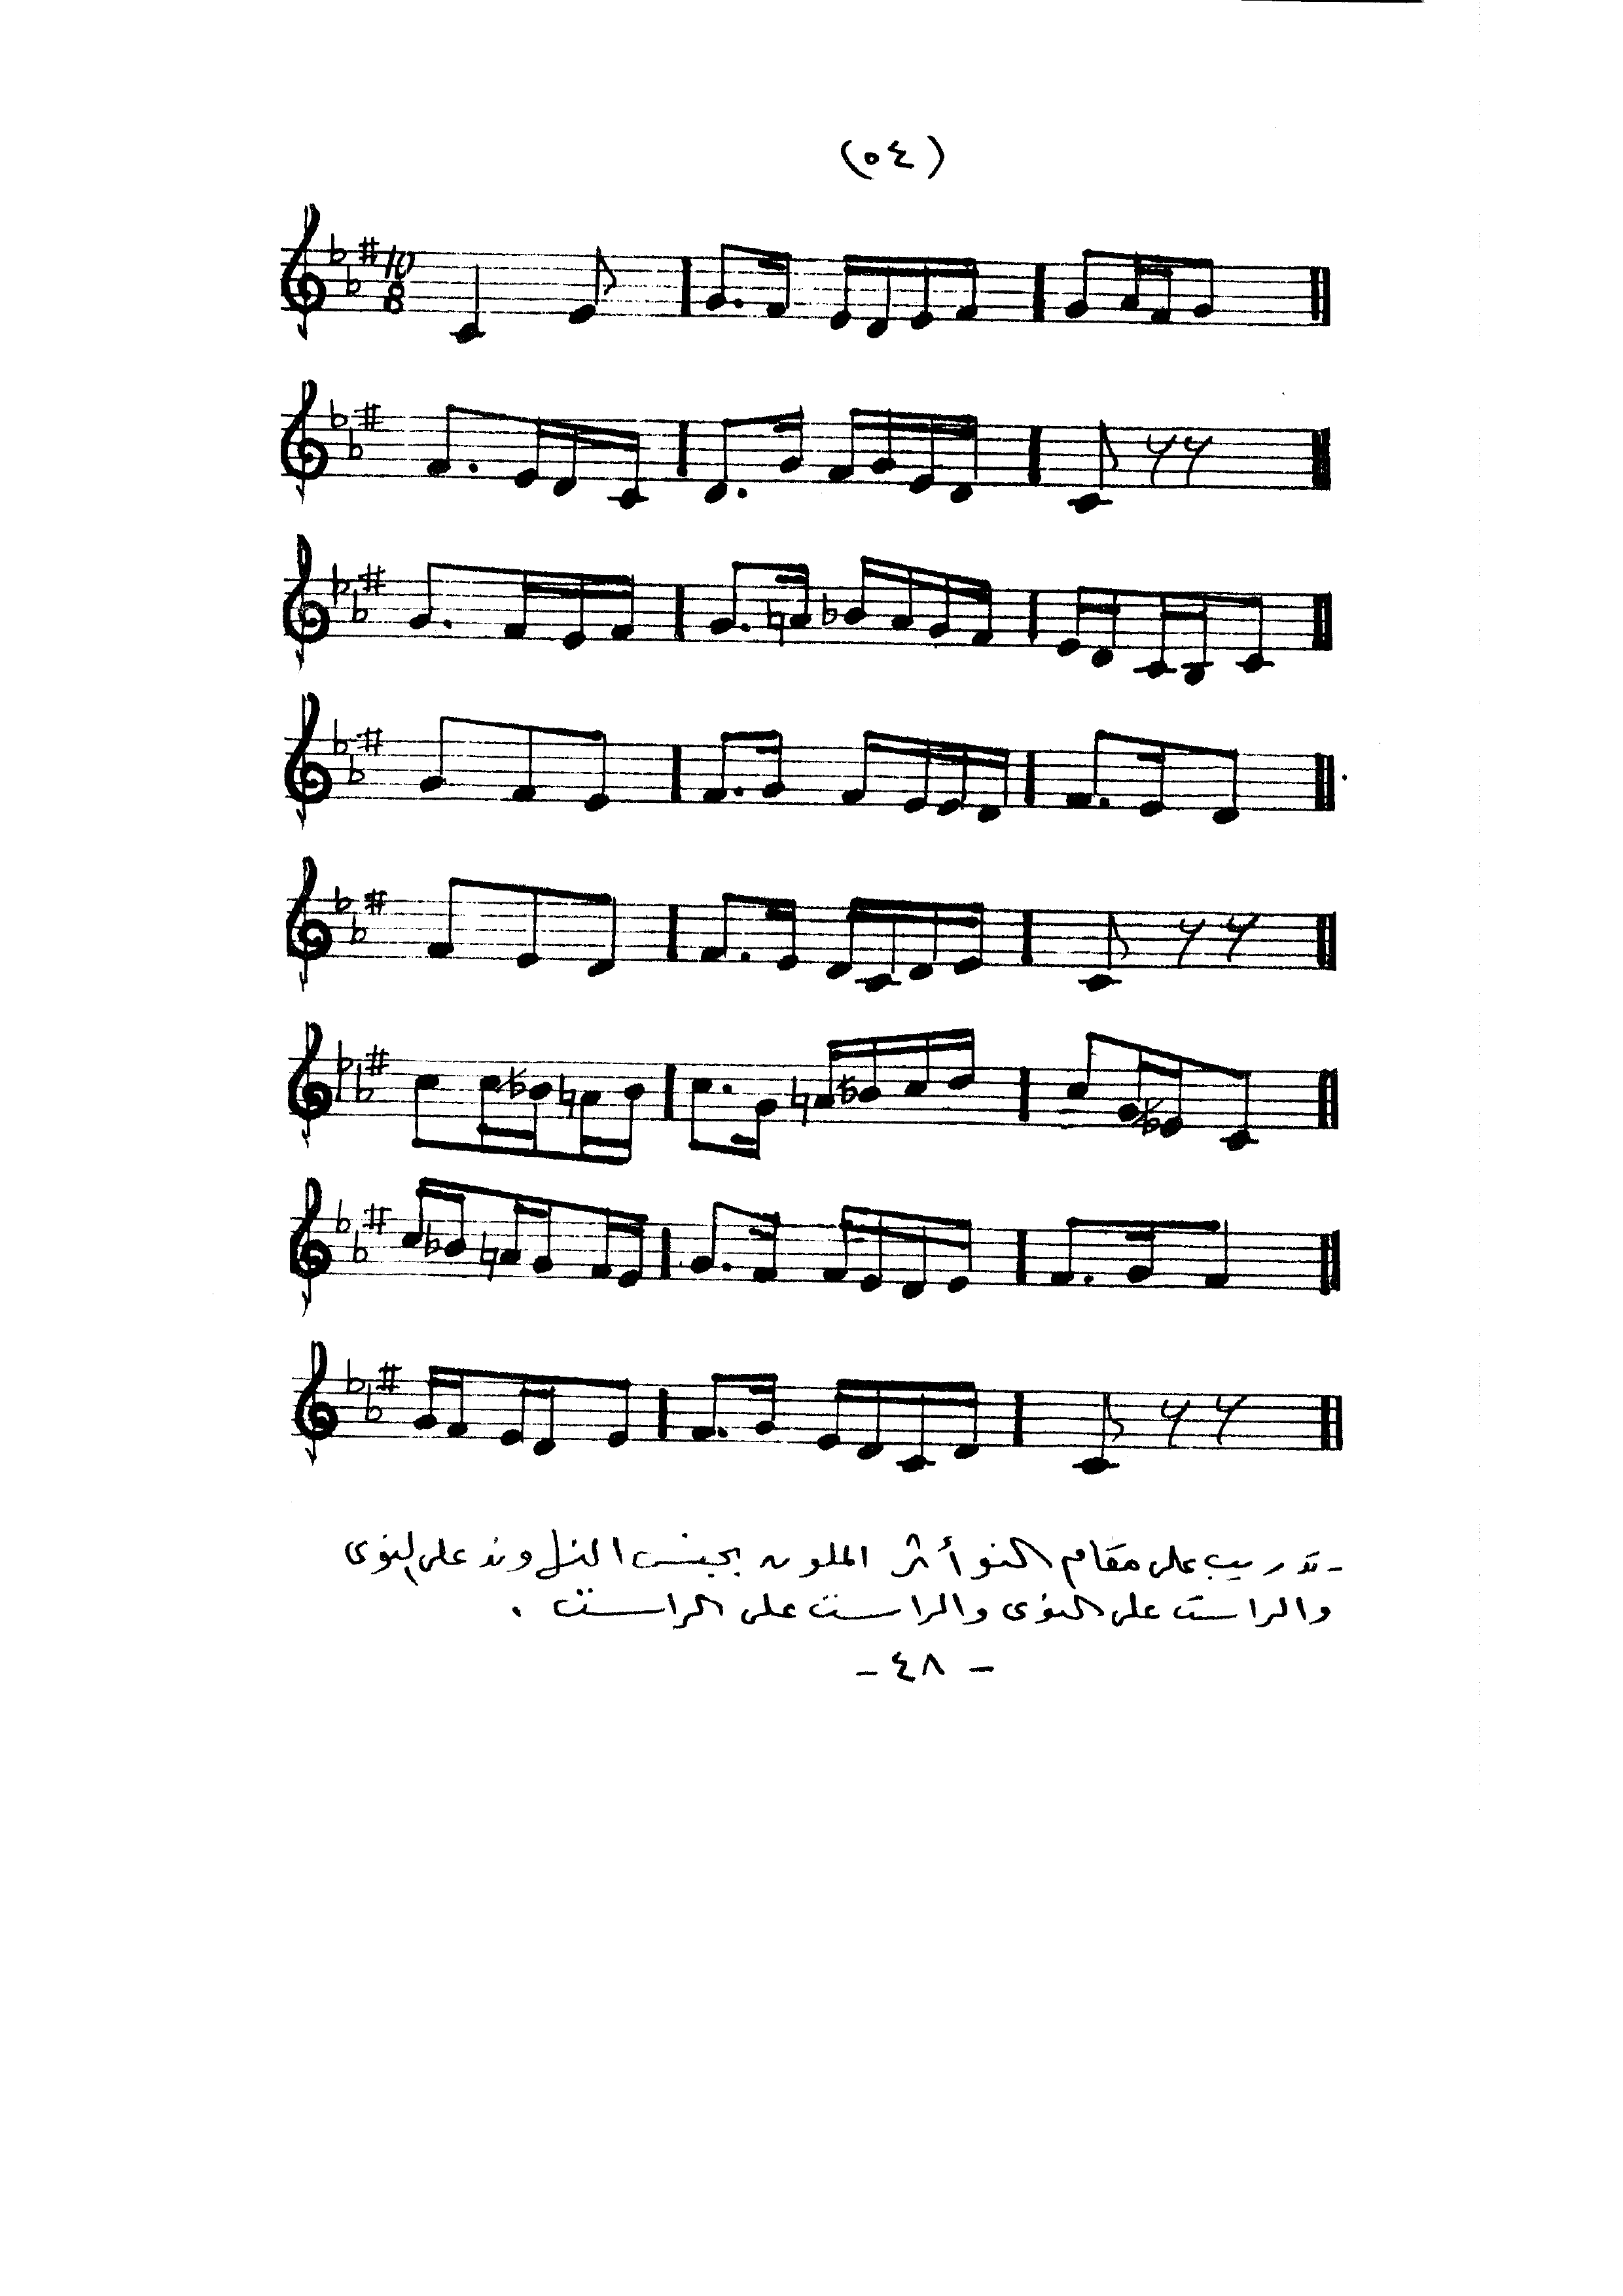 (٥٤)
10
8
- تدريب على مقام النوأثر الملون بجنس النهاوند على النوى
والراست على النوى والراست على الراست .
- ٤٨ -